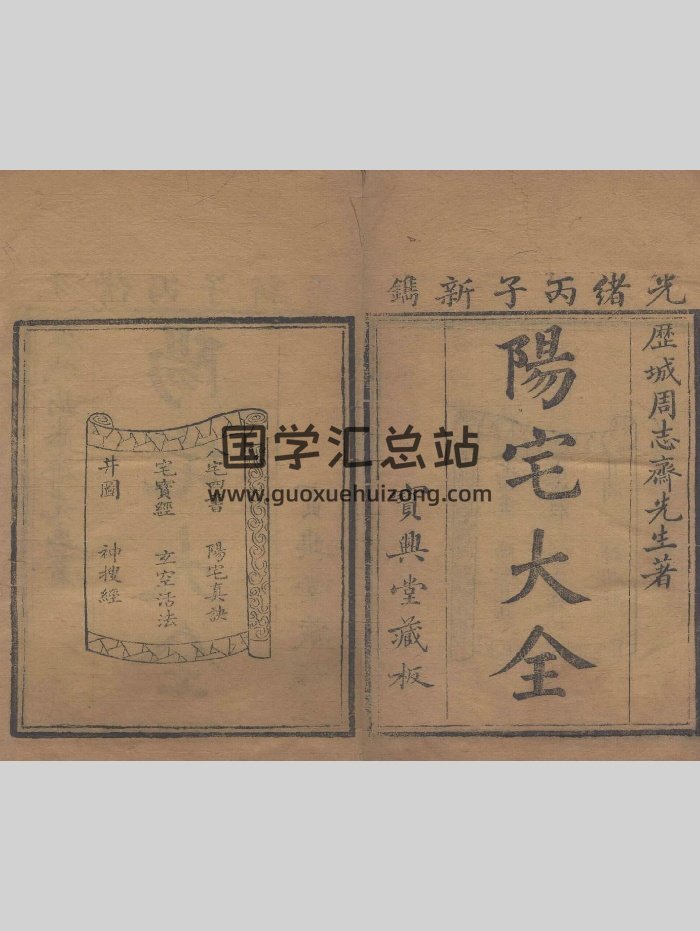 光緒丙子新鐫
歷城周志齋先生著
陽宅大全
寶興堂藏板
八宅四書 陽宅真訣
宅寶經 玄空活法
井圖 神搜經
国学汇总站
www.guoxuehuizong.com